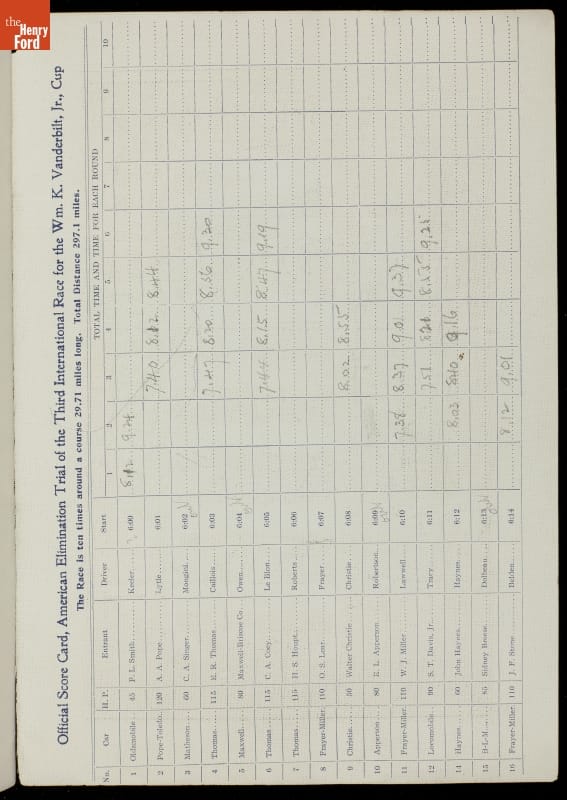 the
Henry
Ford
Official Score Card, American Elimination Trial of the Third International Race for the Wm. K. Vanderbilt, Jr., Cup
The Race is ten times around a course 29.71 miles long. Total Distance 297.1 miles.
TOTAL TIME AND TIME FOR EACH ROUND
No. Car H. P. Entrant Driver Start 1 2 3 4 5 6 7 8 9 10
1 Oldsmobile 45 P. L. Smith Keeler 6:00 9.24
2 Pope-Toledo 120 A. A. Pope Lytle 6:01 7.40 8.12 8.44
3 Matheson 60 C. A. Singer Mongini 6:02 out
4 Thomas 115 E. R. Thomas Caillois 6:03 7.47 8.20 8.56 9.20
5 Maxwell 80 Maxwell-Briscoe Co. Owen 6:04 out
6 Thomas 115 C. A. Coey Le Blon 6:05 7.44 8.15 8.47 9.19
7 Thomas 115 H. S. Houpt Roberts 6:06
8 Frayer-Miller 110 O. S. Lear Frayer 6:07
9 Christie 50 Walter Christie Christie 6:08 8.02 8.55
10 Apperson 80 E. L. Apperson Robertson 6:09 out
11 Frayer-Miller 110 W. J. Miller Lawwell 6:10 7.38 8.37 9.01 9.37
12 Locomobile 90 S. T. Davis, Jr. Tracy 6:11 7.51 8.20 8.55 9.25
14 Haynes 60 John Haynes Haynes 6:12 8.03 8.40 9.16
15 B-L-M 85 Sidney Breese Dolbeau 6:13 out
16 Frayer-Miller 110 J. F. Stone Belden 6:14 8.12 9.01